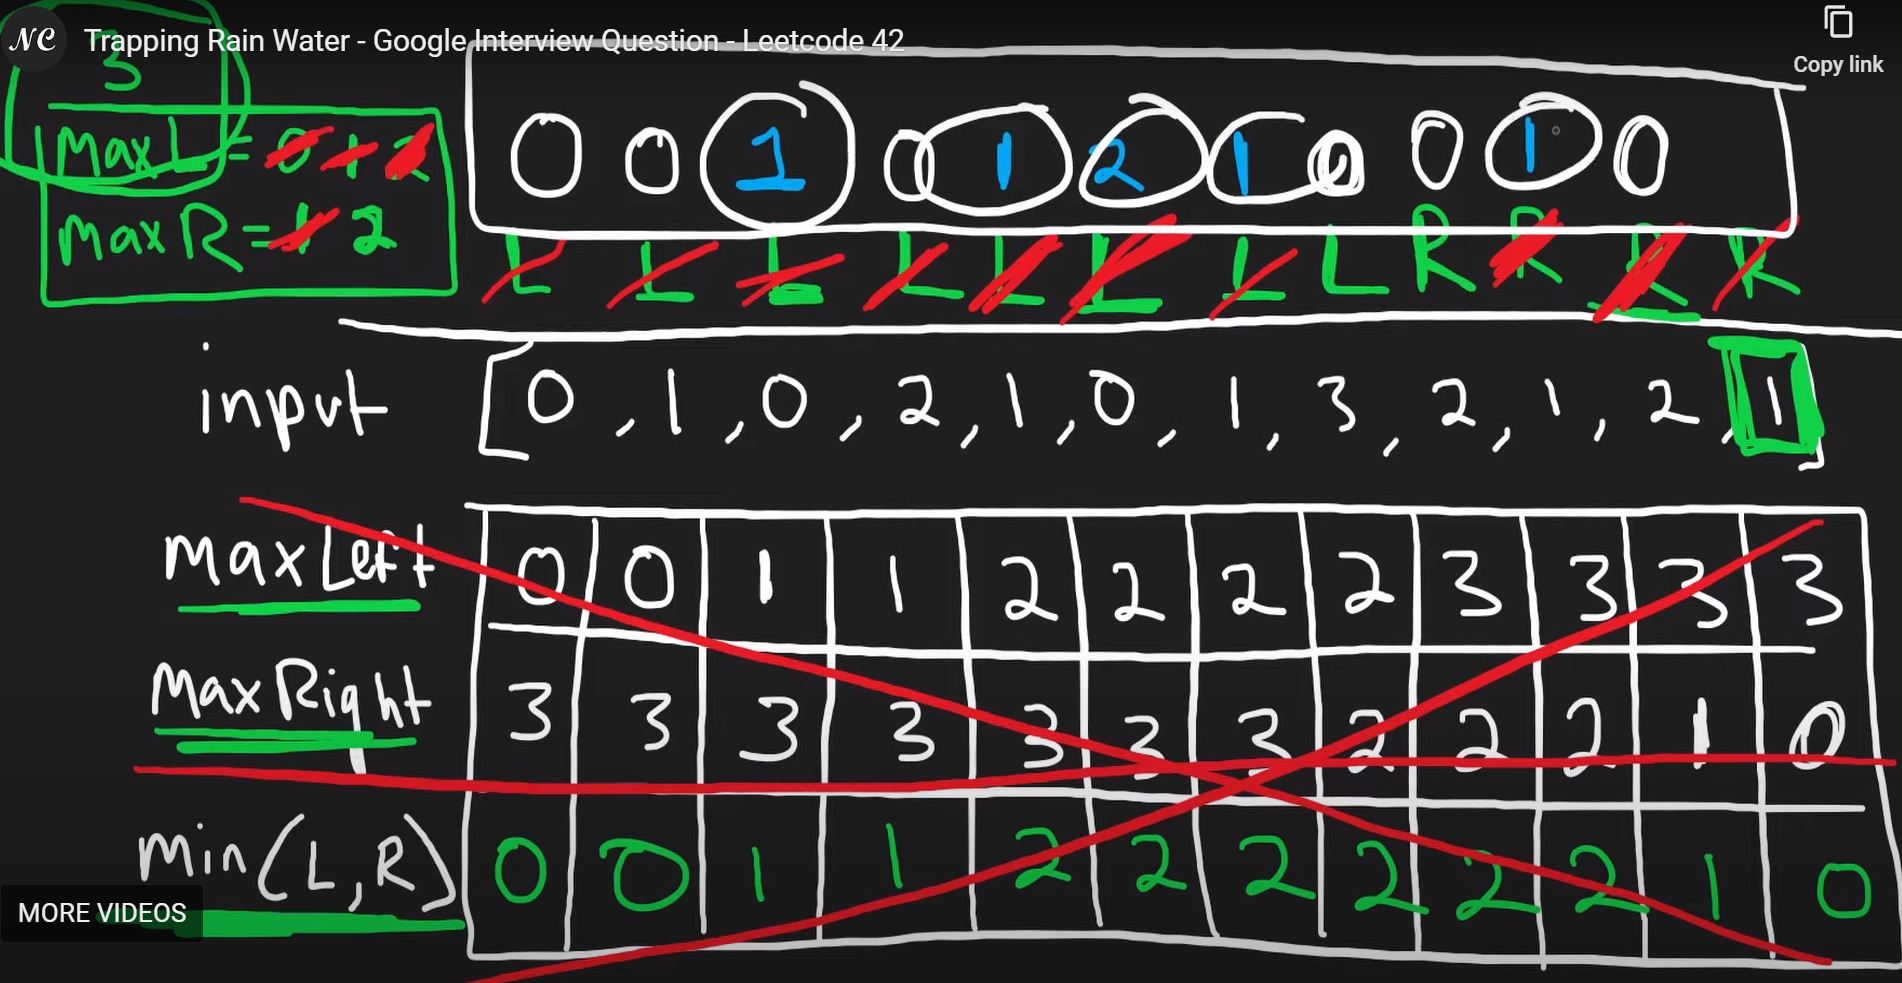 NC Trapping Rain Water - Google Interview Question - Leetcode 42
Copy link
3
MaxL = 0 1 2
maxR = 1 2
0 0 1 0 1 2 1 0 0 1 0
L L L L L L L L R R R R
input [0, 1, 0, 2, 1, 0, 1, 3, 2, 1, 2, 1]
MaxLeft 0 0 1 1 2 2 2 2 3 3 3 3
MaxRight 3 3 3 3 3 3 3 2 2 2 1 0
Min(L,R) 0 0 1 1 2 2 2 2 2 2 1 0
MORE VIDEOS